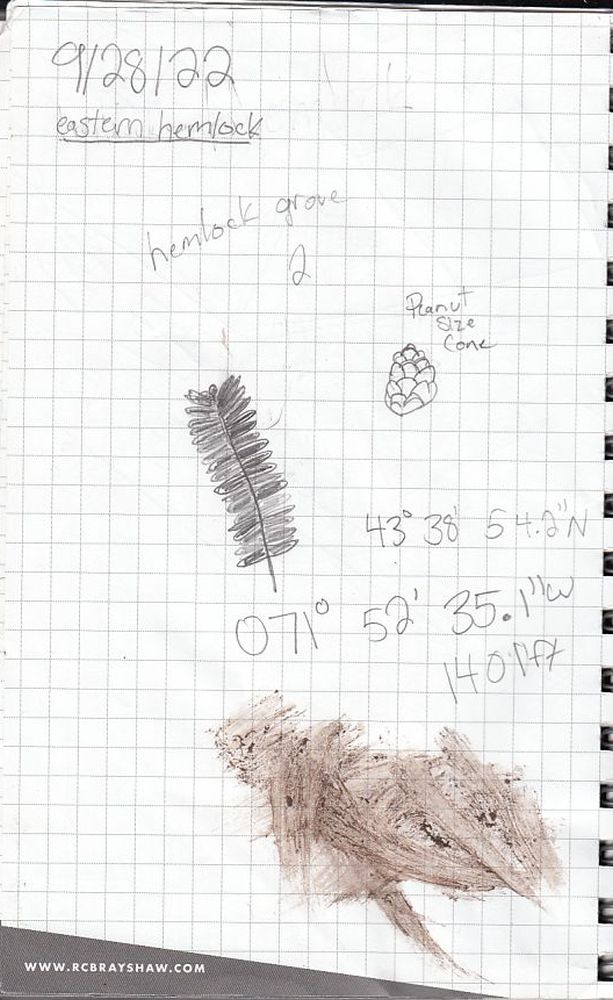 9/28/22
eastern hemlock
hemlock grove
2
Peanut
size
cone
43° 38' 54.2"N
071° 52' 35.1"W
1401ft
WWW.RCBRAYSHAW.COM